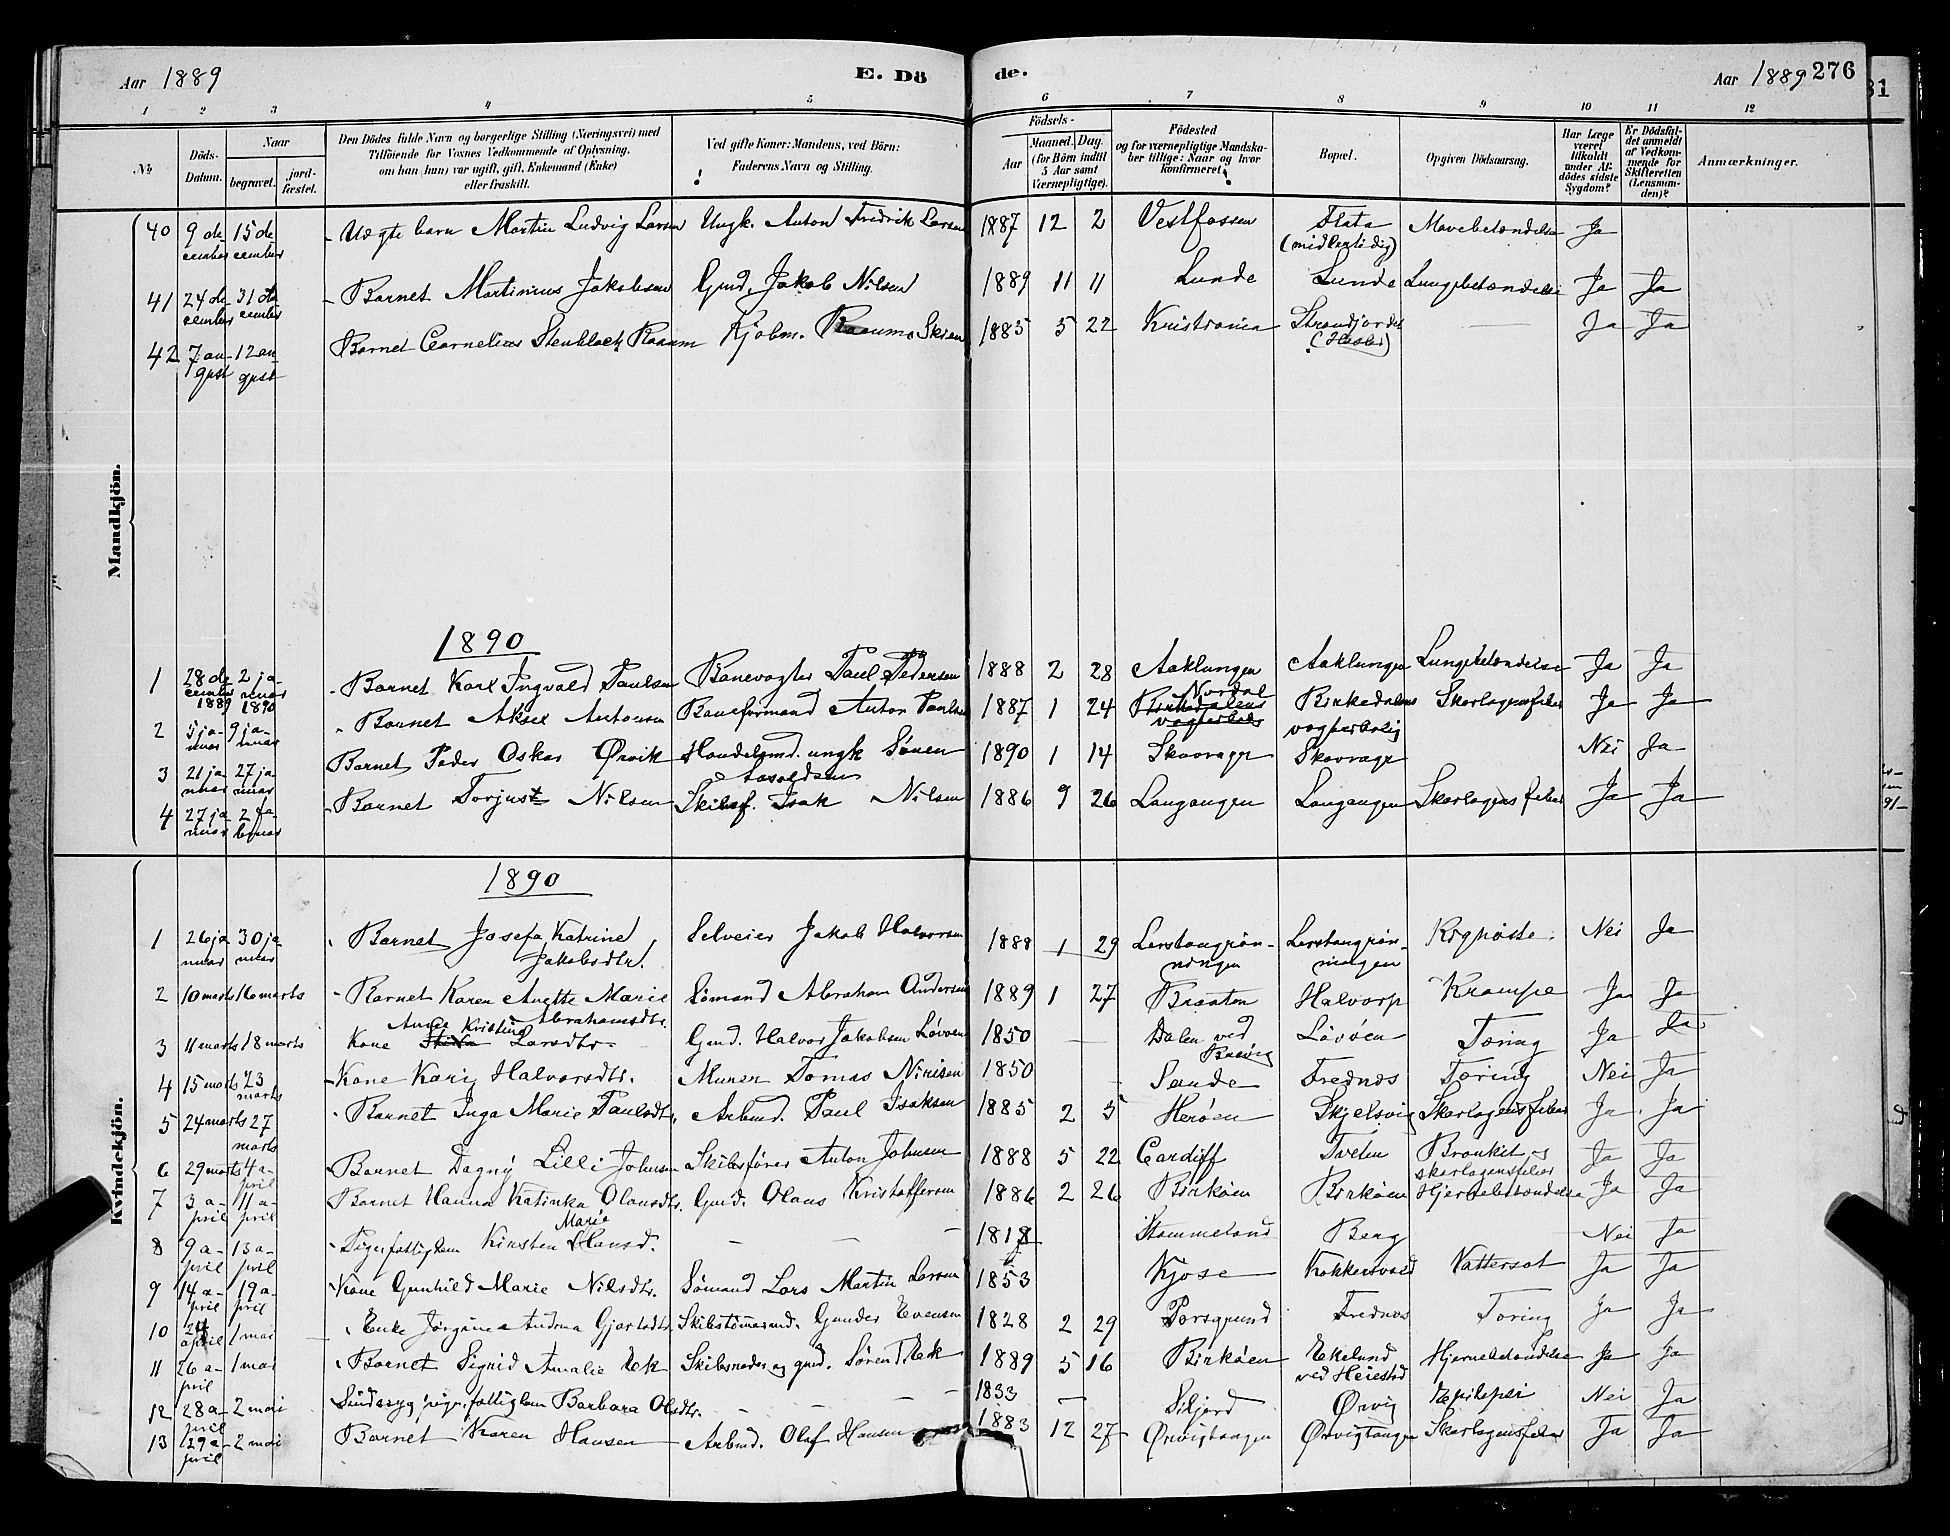 Aar 1889 E. Dö de. Aar 1889 276
31
1 2 3 4 5 6 7 8 9 10 11 12
No. Döds-Datum. Naar begravet. jord-fæstet. Den Dödes fulde Navn og borgerlige Stilling (Næringsvei) med Tilföiende for Voxnes Vedkommende af Oplysning, om han (hun) var ugift, gift, Enkemand (Enke) eller fraskilt. Ved gifte Koner: Mandens, ved Börn: Faderens Navn og Stilling. Födsels- Aar Maaned. Dag. (for Börn indtil 5 Aar samt Værnepligtige). Födested og for værnepligtige Mandskaber tillige: Naar og hvor konfirmeret. Bopæl. Opgiven Dödsaarsag. Har Læge været tilkaldt under Afdödes sidste Sygdom? Er Dödsfaldet anmeldt af Vedkommende for Skifteretten (Lensmanden)? Anmærkninger.
Mandkjön.
40 9 december 15 december Uægte barn Martin Ludvig Larsen Ungk. Anton Fredrik Larsen 1887 12 2 Vestfossen Flata (midlertidig) Mavebetændelse Ja
41 24 december 31 december Barnet Martinius Jakobsen Gmd. Jakob Nilsen 1889 11 11 Lunde Lunde Lungebetændelse Ja Ja
42 7 august 12 august Barnet Cornelius Stenbloch Raaum Kjøbm. Raaum Skien 1885 5 22 Kristiania Strandjordet — Ja Ja
1890
1 28 december 1889 2 januar 1890 Barnet Karl Ingvald Paulsen Banevogter Paul Pedersen 1888 2 28 Aaklungen Aaklungen Lungebetændelse Ja Ja
2 5 januar 9 januar Barnet Aksel Antonsen Baneformand Anton Paulsen 1887 1 24 Nordal Birkedalens vogterbolig Birkedalens vogterbolig Skarlagensfeber Ja Ja
3 21 januar 27 januar Barnet Peder Oskar Ørvik Handelsmd. ungk Sønen 1890 1 14 Skavrager Skavrager Nei Ja
4 27 januar 2 februar Barnet Torjus Nilsen Skibsf. Isak Nilsen 1886 9 26 Langangen Langangen Skarlagensfeber Ja Ja
Kvindekjön.
1890
1 26 januar 30 januar Barnet Josefa Katrine Jakobsdtr. Selveier Jakob Halvorsen 1888 1 29 Lerstangrønningen Lerstangrønningen Kighoste Nei Ja
2 10 marts 16 marts Barnet Karen Anette Marie Abrahamsdtr. Sømand Abraham Andersen 1889 1 27 Braaten Halvorp Krampe Ja Ja
3 11 marts 18 marts Kone Anne Kristine Larsdtr. Gmd. Halvor Jakobsen Løvøen 1850 — Dalen ved Brevig Løvøen Tæring Ja Ja
4 15 marts 23 marts Kone Karig Halvorsdtr. Murer Tomas Nirisen 1850 Sande Frednæs Tæring Nei Ja
5 24 marts 27 marts Barnet Inga Marie Paulsdtr. Arbmd. Paul Isaksen 1885 2 5 Herøen Skjelsvig Skarlagensfeber Ja Ja
6 29 marts 4 april Barnet Dagny Lilli Johnsen Skibsfører Anton Johnsen 1888 5 22 Cardiff Tveten Bronkit og skarlagensfeber Ja Ja
7 3 april 11 april Barnet Hanna Katinka Olausdtr. Gmd. Olaus Kristoffersen 1886 2 26 Birkøen Birkøen Hjernebetændelse Ja Ja
8 9 april 13 april Pigefattiglem Kirsten Marie Hansd. — — — 1818 Stammeland Berg Nei Ja
9 14 april 19 april Kone Gunhild Marie Nilsdtr. Sømand Lars Martin Larsen 1853 Kjose Kokkersvold Vattersot Ja Ja
10 24 april 1 mai Enke Jørgine Andrea Gjertsdtr. Skibstømmermd. Gunder Evensen 1828 2 29 Porsgrund Frednæs Tæring Ja Ja
11 26 april 1 mai Barnet Sigrid Amalie Eek Skibsreder og gmd. Søren Eek 1889 5 16 Birkøen Ekelund ved Heistad Hjernebetændelse Ja Ja
12 28 april 2 mai Sindssyg pige, fattiglem Barbara Olsdtr. — — — 1833 — Siljord Ørvig Epilepsi Nei Ja
13 29 april 2 mai Barnet Karen Hansen Arbmd. Olaf Hansen 1883 12 27 Ørvigtangen Ørvigtangen Skarlagensfeber Ja Ja